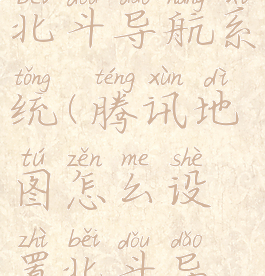 běi dǒu dǎo háng xì
北斗导航系
tǒng téng xùn dì
统(腾讯地
tú zěn me shè
图怎么设
zhì běi dǒu dǎo
置北斗导